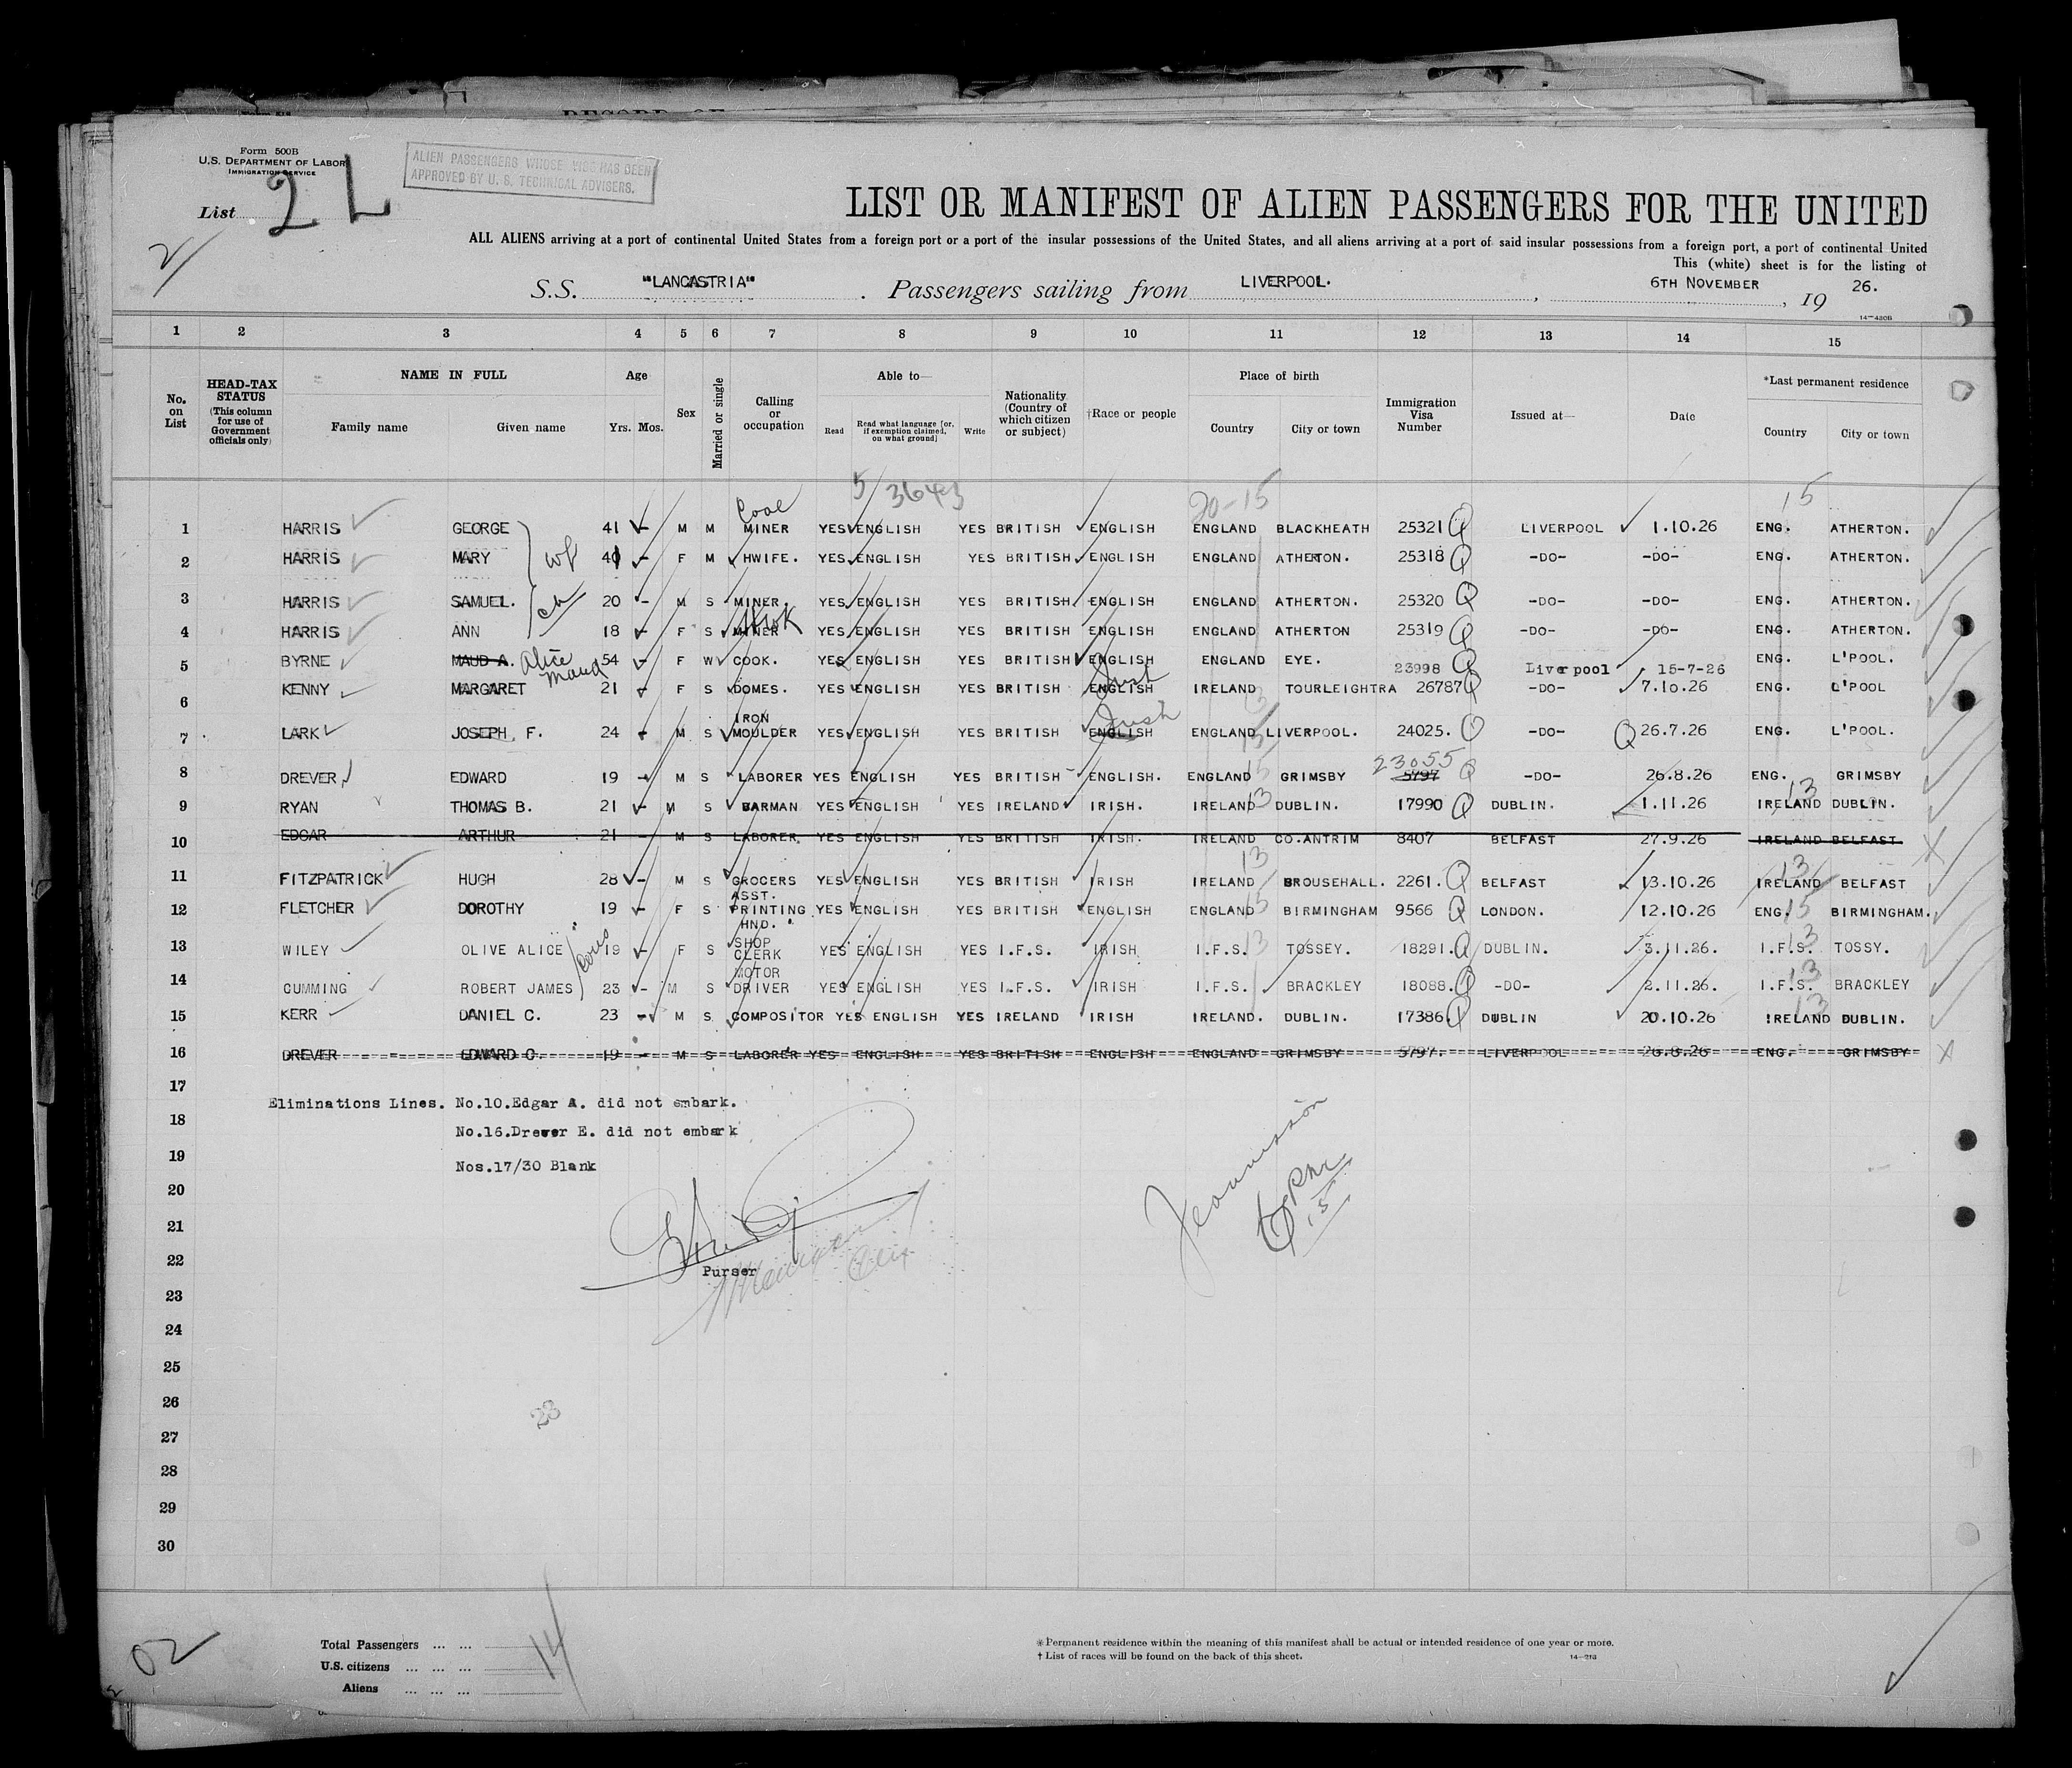 Form 500B
U.S. DEPARTMENT OF LABOR
IMMIGRATION SERVICE
ALIEN PASSENGERS WHOSE VISE HAS BEEN
APPROVED BY U. S. TECHNICAL ADVISERS.
List 2 L
2/
LIST OR MANIFEST OF ALIEN PASSENGERS FOR THE UNITED
ALL ALIENS arriving at a port of continental United States from a foreign port or a port of the insular possessions of the United States, and all aliens arriving at a port of said insular possessions from a foreign port, a port of continental United
This (white) sheet is for the listing of
S.S. "LANCASTRIA" . Passengers sailing from LIVERPOOL. , 6TH NOVEMBER , 19 26.
14-430B
1 2 3 4 5 6 7 8 9 10 11 12 13 14 15
No. on List HEAD-TAX STATUS (This column for use of Government officials only) NAME IN FULL Family name Given name Age Yrs. Mos. Sex Married or single Calling or occupation Able to— Read Read what language [or, if exemption claimed, on what ground] Write Nationality (Country of which citizen or subject) †Race or people Place of birth Country City or town Immigration Visa Number Issued at— Date *Last permanent residence Country City or town
5 3643 20-15 15
Coal
1 HARRIS GEORGE 41 - M M MINER YES ENGLISH YES BRITISH ENGLISH ENGLAND BLACKHEATH 25321 Q LIVERPOOL 1.10.26 ENG. ATHERTON.
2 HARRIS MARY wf 40 - F M HWIFE. YES ENGLISH YES BRITISH ENGLISH ENGLAND ATHERTON. 25318 Q -DO- -DO- ENG. ATHERTON.
3 HARRIS SAMUEL. ch 20 - M S MINER. YES ENGLISH YES BRITISH ENGLISH ENGLAND ATHERTON. 25320 Q -DO- -DO- ENG. ATHERTON.
4 HARRIS ANN 18 - F S MINER YES ENGLISH YES BRITISH ENGLISH ENGLAND ATHERTON 25319 Q -DO- -DO- ENG. ATHERTON.
5 BYRNE MAUD A. Alice Maud 54 - F W COOK. YES ENGLISH YES BRITISH ENGLISH ENGLAND EYE. 23998 Q Liverpool 15-7-26 ENG. L'POOL.
6 KENNY MARGARET 21 - F S DOMES. YES ENGLISH YES BRITISH ENGLISH Irish IRELAND 13 TOURLEIGHTRA 26787 Q -DO- 7.10.26 ENG. L'POOL
7 LARK JOSEPH, F. 24 - M S IRON MOULDER YES ENGLISH YES BRITISH ENGLISH Irish ENGLAND 15 LIVERPOOL. 24025. Q -DO- Q 26.7.26 ENG. L'POOL.
8 DREVER, EDWARD 19 - M S LABORER YES ENGLISH YES BRITISH ENGLISH. ENGLAND 15 GRIMSBY 5797 23055 Q -DO- 26.8.26 ENG. GRIMSBY
9 RYAN THOMAS B. 21 - M S BARMAN YES ENGLISH YES IRELAND IRISH. IRELAND 13 DUBLIN. 17990 Q DUBLIN. 1.11.26 IRELAND 13 DUBLIN.
10 EDGAR ARTHUR 21 - M S LABORER. YES ENGLISH YES BRITISH IRISH. IRELAND CO.ANTRIM 8407 BELFAST 27.9.26 IRELAND BELFAST. X
11 FITZPATRICK HUGH 28 - M S GROCERS ASST. YES ENGLISH YES BRITISH IRISH IRELAND 13 BROUSEHALL. 2261. Q BELFAST 13.10.26 IRELAND 13 BELFAST
12 FLETCHER DOROTHY 19 - F S PRINTING HND. YES ENGLISH YES BRITISH ENGLISH ENGLAND 15 BIRMINGHAM 9566 Q LONDON. 12.10.26 ENG. 15 BIRMINGHAM.
13 WILEY OLIVE ALICE 19 - F S SHOP CLERK YES ENGLISH YES I.F.S. IRISH I.F.S. 13 TOSSEY. 18291. Q DUBLIN. 3.11.26. I.F.S. 13 TOSSY.
14 CUMMING ROBERT JAMES 23 - M S MOTOR DRIVER YES ENGLISH YES I.F.S. IRISH I.F.S. BRACKLEY 18088. Q -DO- 2.11.26. I.F.S. 13 BRACKLEY
15 KERR DANIEL C. 23 - M S COMPOSITOR YES ENGLISH YES IRELAND IRISH IRELAND. DUBLIN. 17386. Q DUBLIN 20.10.26 IRELAND 13 DUBLIN.
16 DREVER EDWARD C. 19 - M S LABORER YES ENGLISH YES BRITISH ENGLISH ENGLAND GRIMSBY 5797. LIVERPOOL 26.8.26 ENG. GRIMSBY X
17
Eliminations Lines. No.10.Edgar A. did not embark.
18
No.16.Drever E. did not embark
19
Nos.17/30 Blank
20
21
22
Purser
23
24
25
26
23
27
28
29
30
02
Total Passengers ... ...
U.S. citizens ... ... ...
Aliens ... ... ...
14
*Permanent residence within the meaning of this manifest shall be actual or intended residence of one year or more.
†List of races will be found on the back of this sheet.